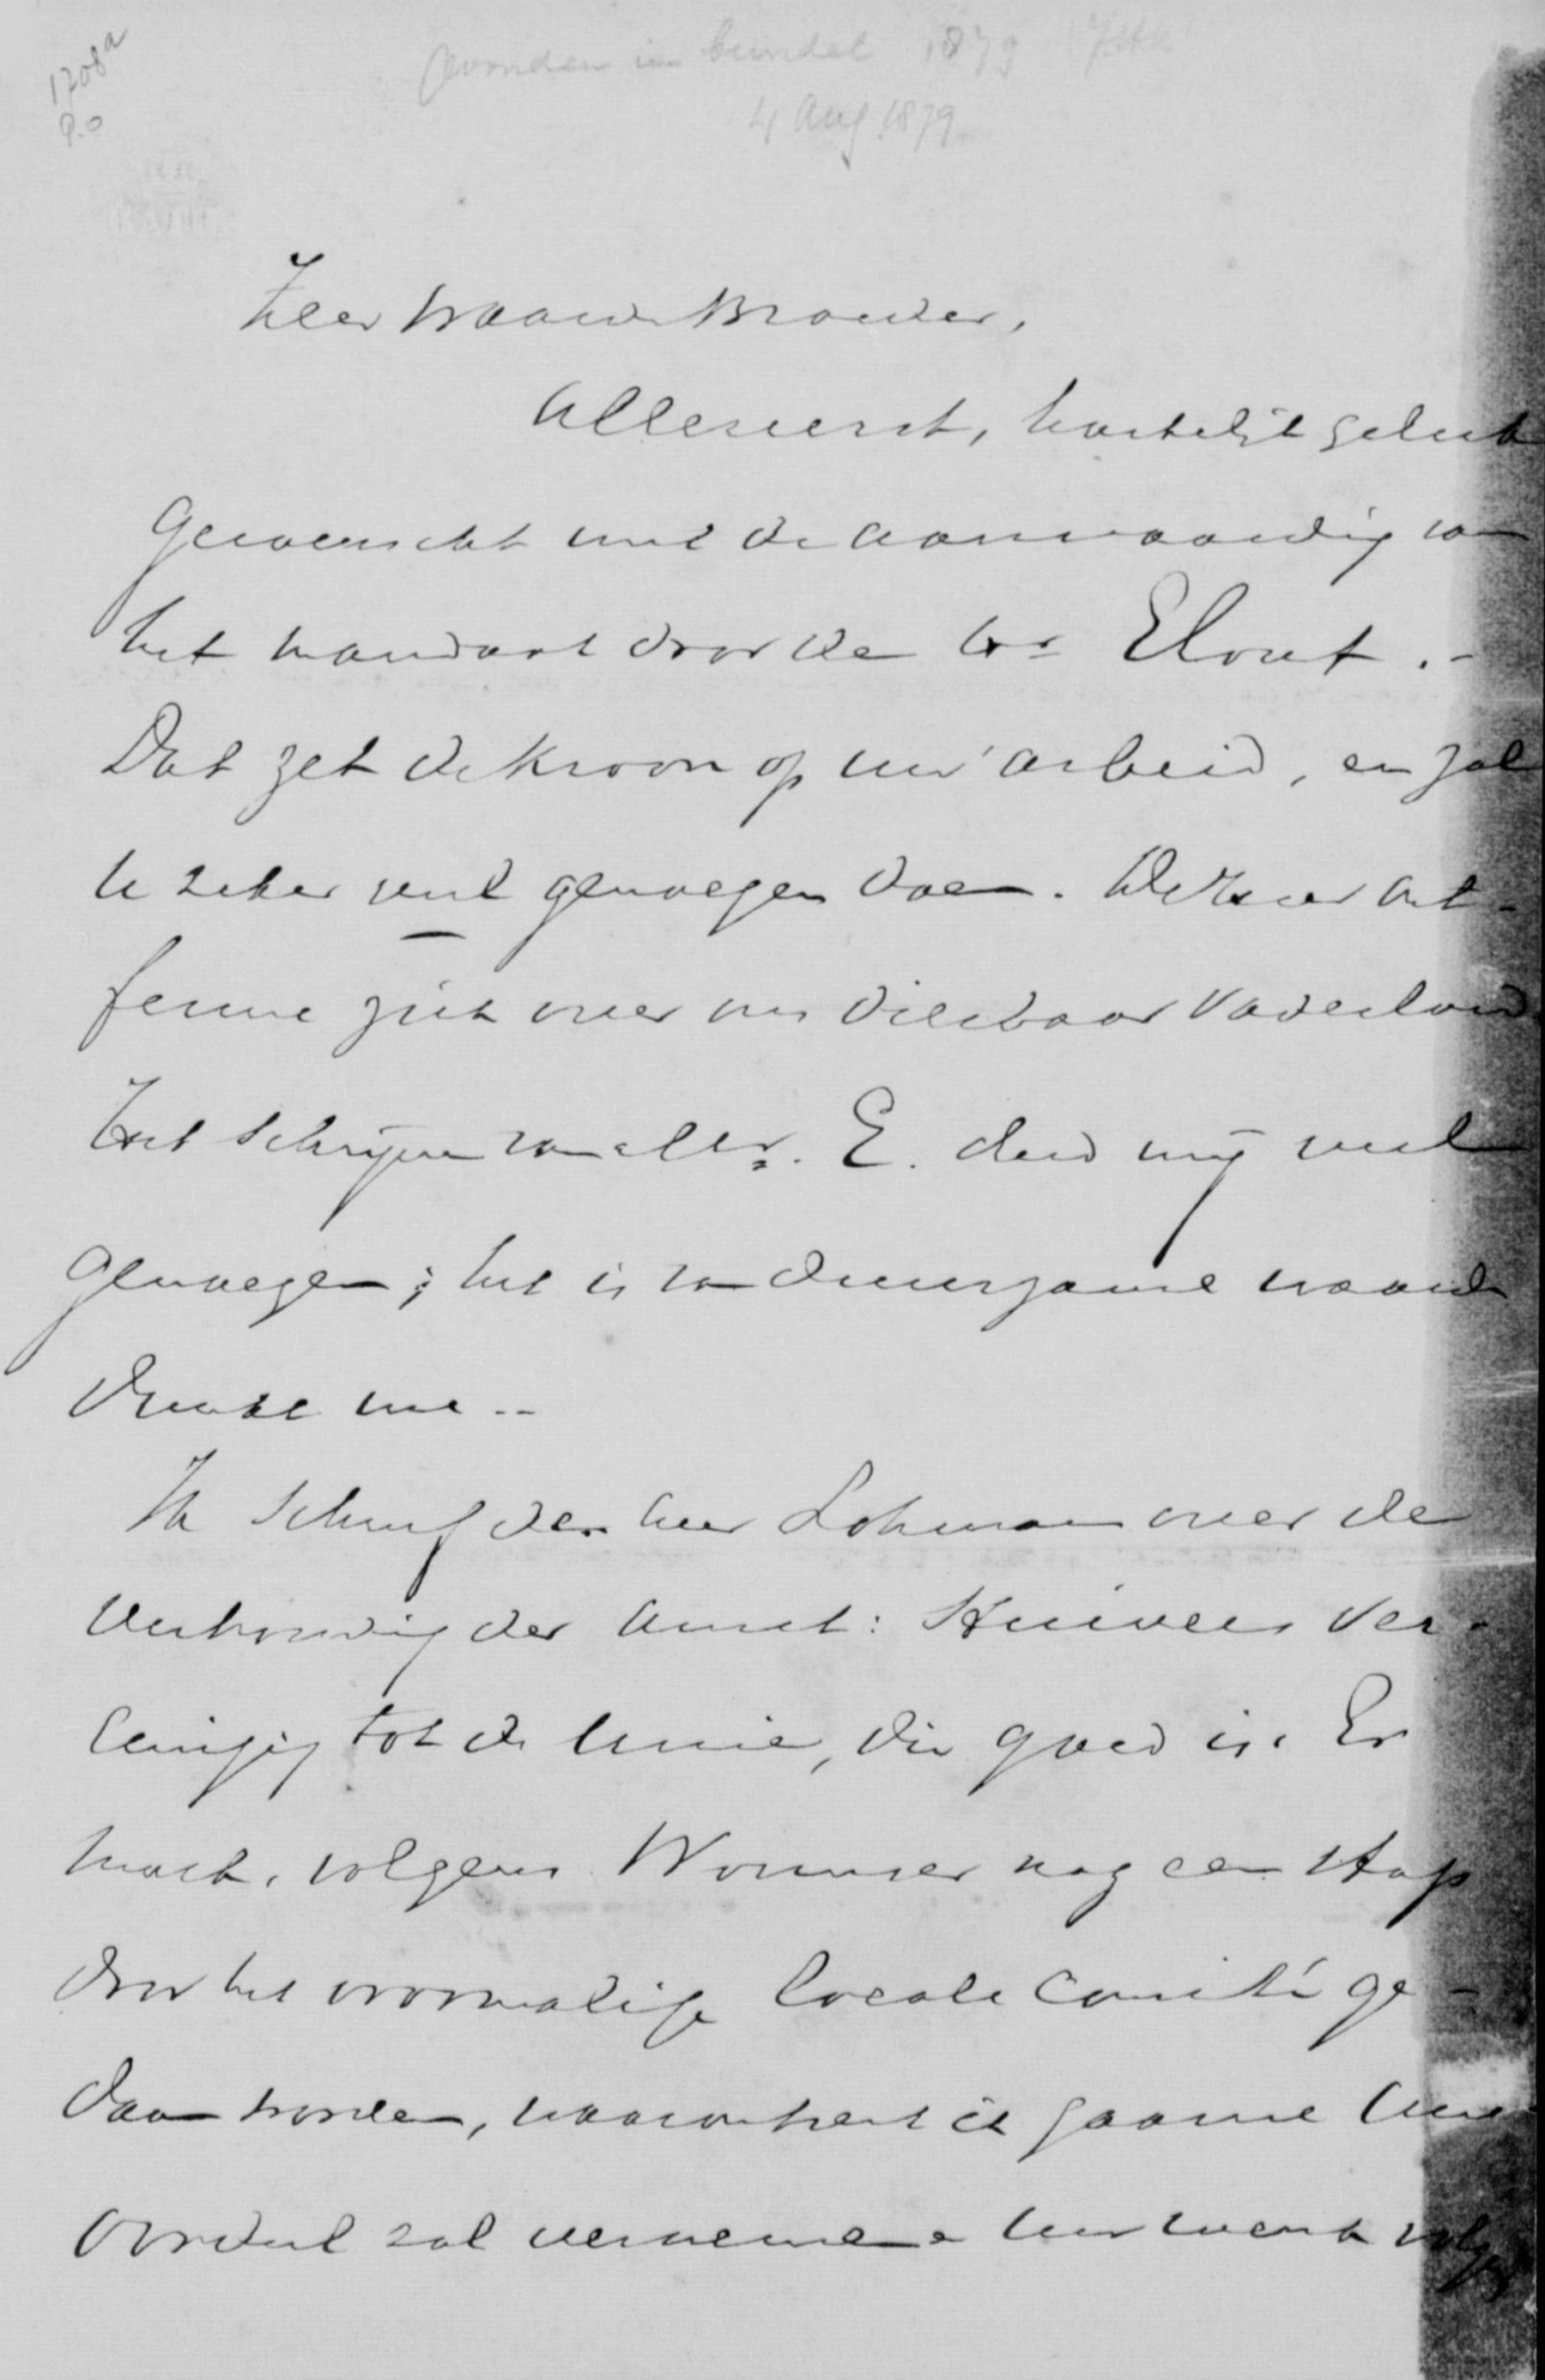 1708a
P.o
Gevonden in bundel 1879
4 Aug 1879
Zeer Waarde Broeder,
Allereerst, hartelijk geluk
gewenscht met de aanvaarding van
het mandaat door den Hr Elout. -
Dat zet de kroon op uw' arbeid, en zal
U zeker veel genoegen doen. De Heer ont-
ferme zich over ons dierbaar Vaderland
Het schrijven van Mr. E. deed mij veel
genoegen; het is van duurzame waarde
dunkt me --
Ik schreef den heer Lohman over de
verhouding der Amst: Heuvels Ver-
eeniging tot de Unie, die goed is. Er
moet, volgens Wormser nog een stap
door het voormalige locale Comité ge-
daan worden, waaromtrent ik gaarne Uw
oordeel zal vernemen